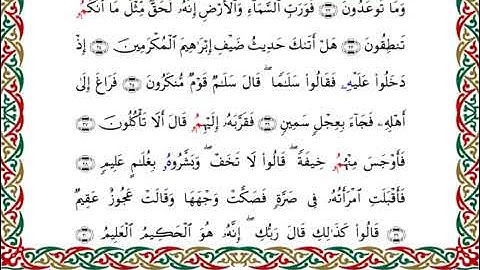 وَمَا تُوعَدُونَ ٢٢ فَوَرَبِّ السَّمَآءِ وَالْأَرْضِ إِنَّهُۥ لَحَقٌّ مِّثْلَ مَآ أَنَّكُمُۥ
تَنطِقُونَ ٢٣ هَلْ أَتَىٰكَ حَدِيثُ ضَيْفِ إِبْرَٰهِيمَ الْمُكْرَمِينَ ٢٤ إِذْ
دَخَلُواْ عَلَيْهِۦ فَقَالُواْ سَلَٰمًا ۖ قَالَ سَلَٰمٌ قَوْمٌ مُّنكَرُونَ ٢٥ فَرَاغَ إِلَىٰٓ
أَهْلِهِۦ فَجَآءَ بِعِجْلٍ سَمِينٍ ٢٦ فَقَرَّبَهُۥٓ إِلَيْهِمُۥ قَالَ أَلَا تَأْكُلُونَ ٢٧
فَأَوْجَسَ مِنْهُمُۥ خِيفَةً ۖ قَالُواْ لَا تَخَفْ ۖ وَبَشَّرُوهُۥ بِغُلَٰمٍ عَلِيمٍ ٢٨
فَأَقْبَلَتِ امْرَأَتُهُۥ فِى صَرَّةٍ فَصَكَّتْ وَجْهَهَا وَقَالَتْ عَجُوزٌ عَقِيمٌ
٢٩ قَالُواْ كَذَٰلِكِ قَالَ رَبُّكِ ۖ إِنَّهُۥ هُوَ الْحَكِيمُ الْعَلِيمُ ٣٠